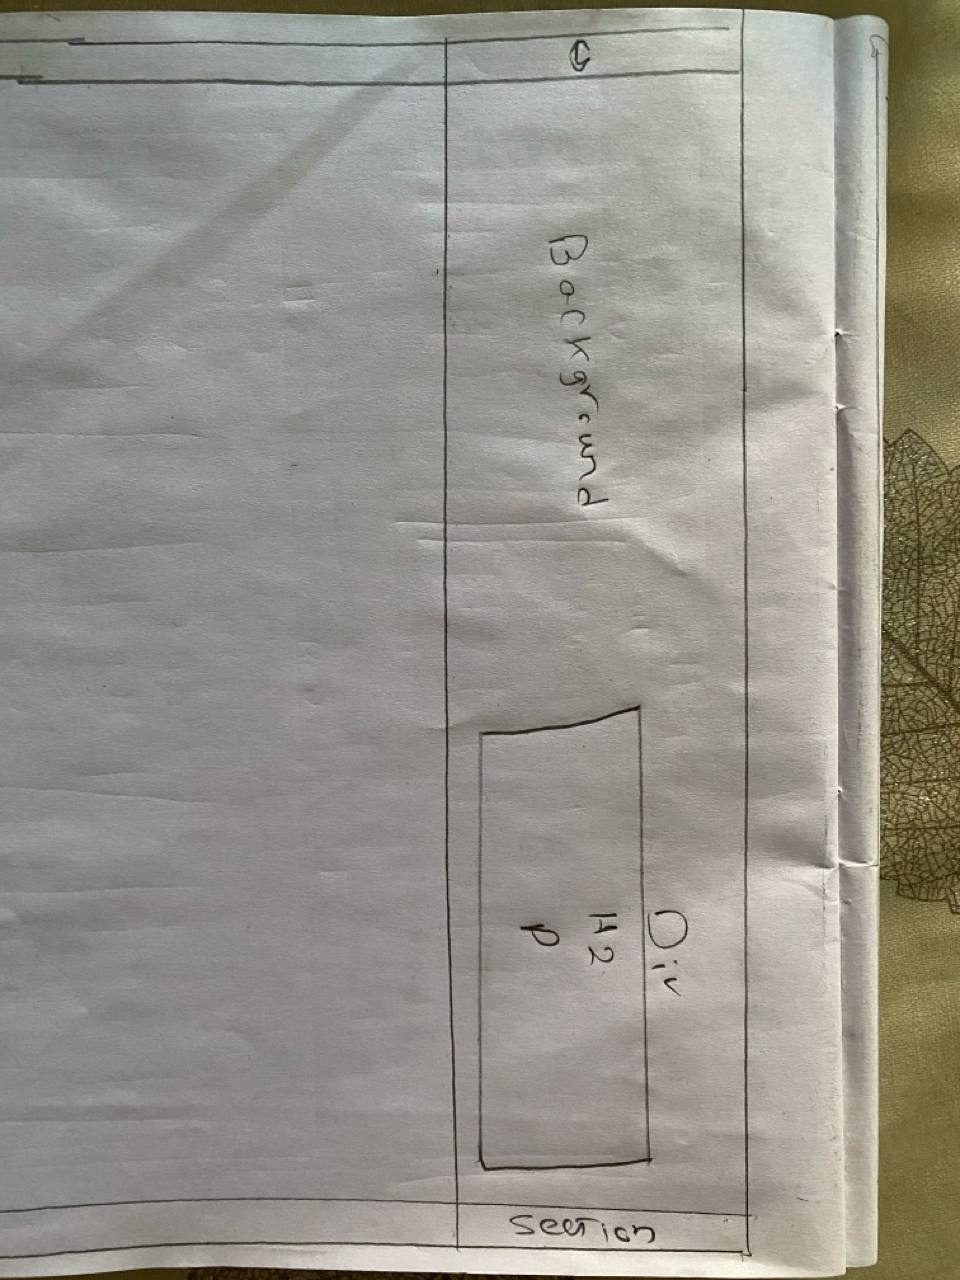 Background
Div
H2
p
Section